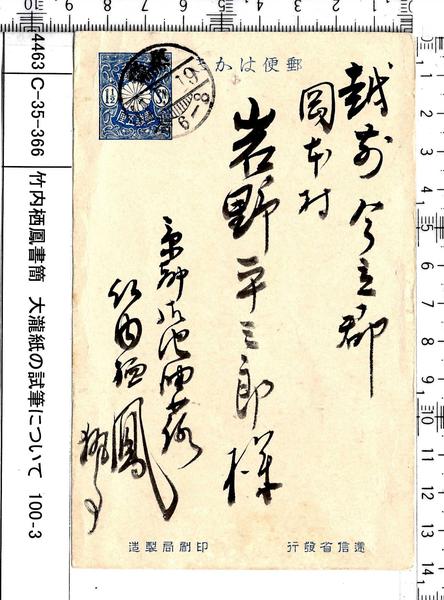 4463 C-35-366 竹内栖鳳書簡 大瀧紙の試筆について 100-3
郵便はかき
越前今立郡
岡本村
岩野平三郎様
京都御池油小路
竹内栖鳳
逓信省發行
印刷局製造